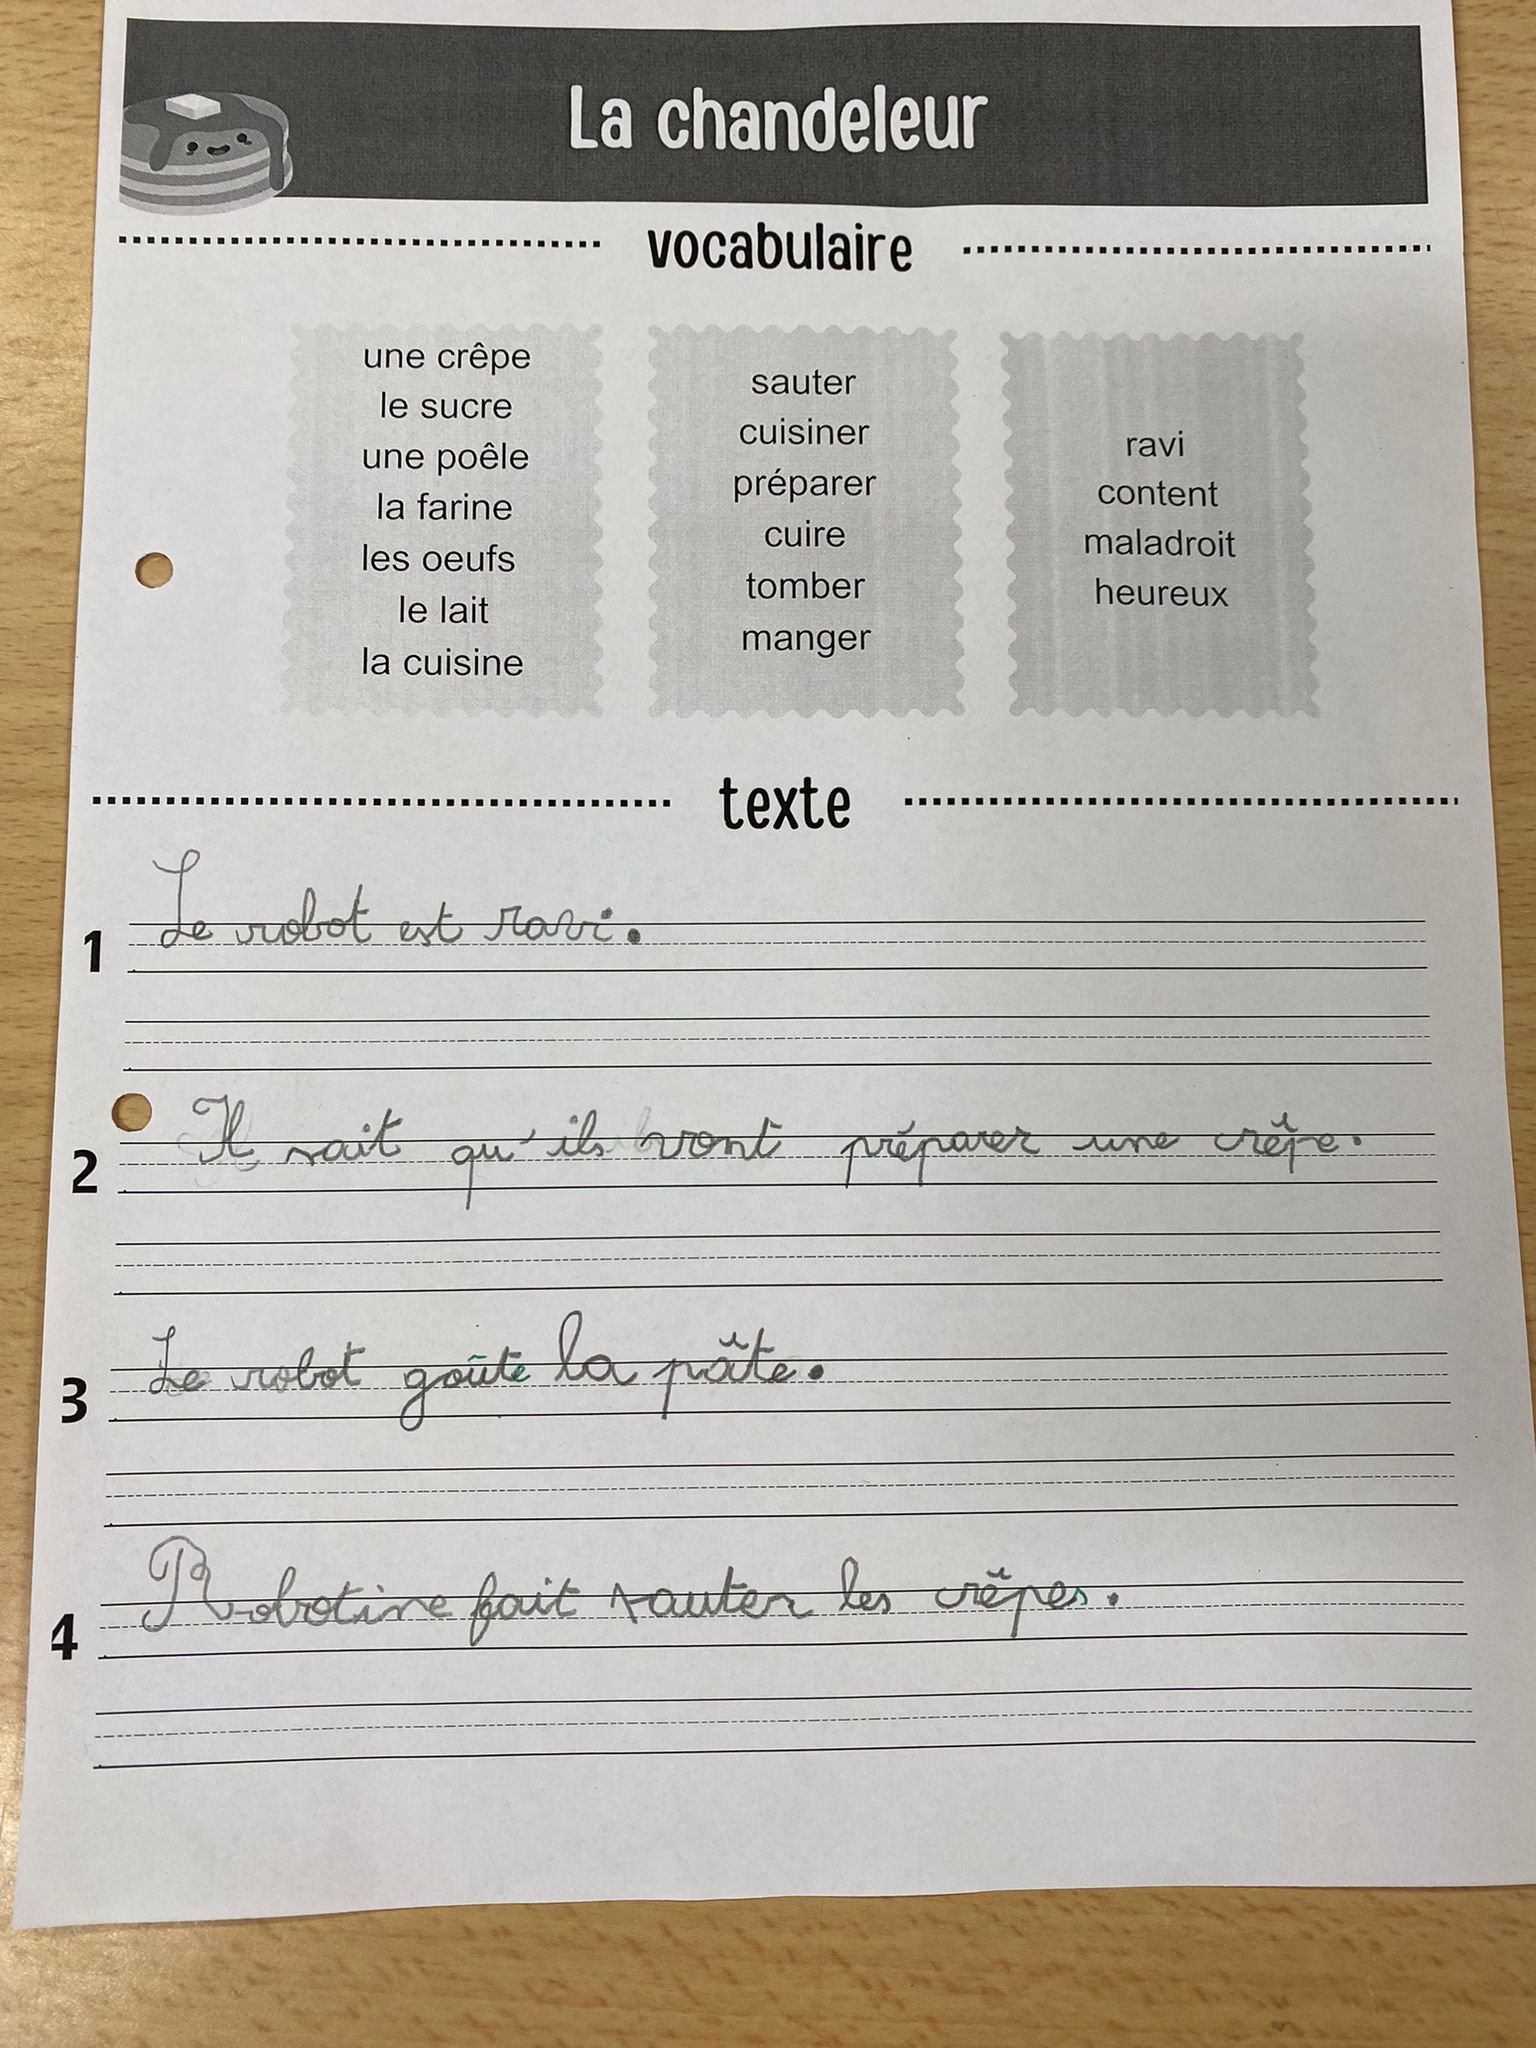 La chandeleur
vocabulaire
une crêpe
le sucre
une poêle
la farine
les oeufs
le lait
la cuisine
sauter
cuisiner
préparer
cuire
tomber
manger
ravi
content
maladroit
heureux
texte
1 Le robot est ravi.
2 Il sait qu'ils vont préparer une crêpe.
3 Le robot goûte la pâte.
4 Robotine fait sauter les crêpes.